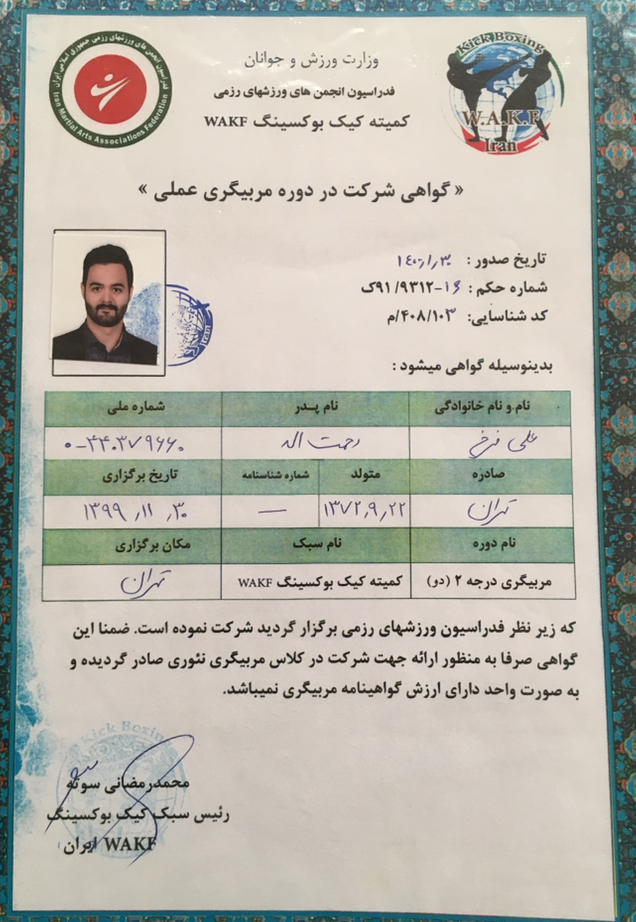 وزارت ورزش و جوانان
فدراسیون انجمن های ورزشهای رزمی
کمیته کیک بوکسینگ WAKF
فدراسیون انجمن های ورزشهای رزمی جمهوری اسلامی ایران
Iran Martial Arts Associations Federation
Kick Boxing
W.A.K.F
Iran
« گواهی شرکت در دوره مربیگری عملی »
تاریخ صدور : ۱۴۰۰٫۱٫۳۰
شماره حکم : ۱۶-۹۱/۹۳۱۲ک
کد شناسایی: ۴۰۸/۱۰۳/م
Iran
بدینوسیله گواهی میشود :
نام و نام خانوادگی نام پدر شماره ملی
علی فرخ رحمت اله ۰-۴۴۰۳۷۹۶۶۰
صادره متولد شماره شناسنامه تاریخ برگزاری
تهران ۱۳۷۲٫۹٫۲۲ — ۱۳۹۹٫۱۱٫۳۰
نام دوره نام سبک مکان برگزاری
مربیگری درجه ۲ (دو) کمیته کیک بوکسینگ WAKF تهران
که زیر نظر فدراسیون ورزشهای رزمی برگزار گردید شرکت نموده است. ضمنا این
گواهی صرفا به منظور ارائه جهت شرکت در کلاس مربیگری تئوری صادر گردیده و
به صورت واحد دارای ارزش گواهینامه مربیگری نمیباشد.
Kick Boxing
محمدرمضانی سوته
رئیس سبک کیک بوکسینگ
WAKF ایران